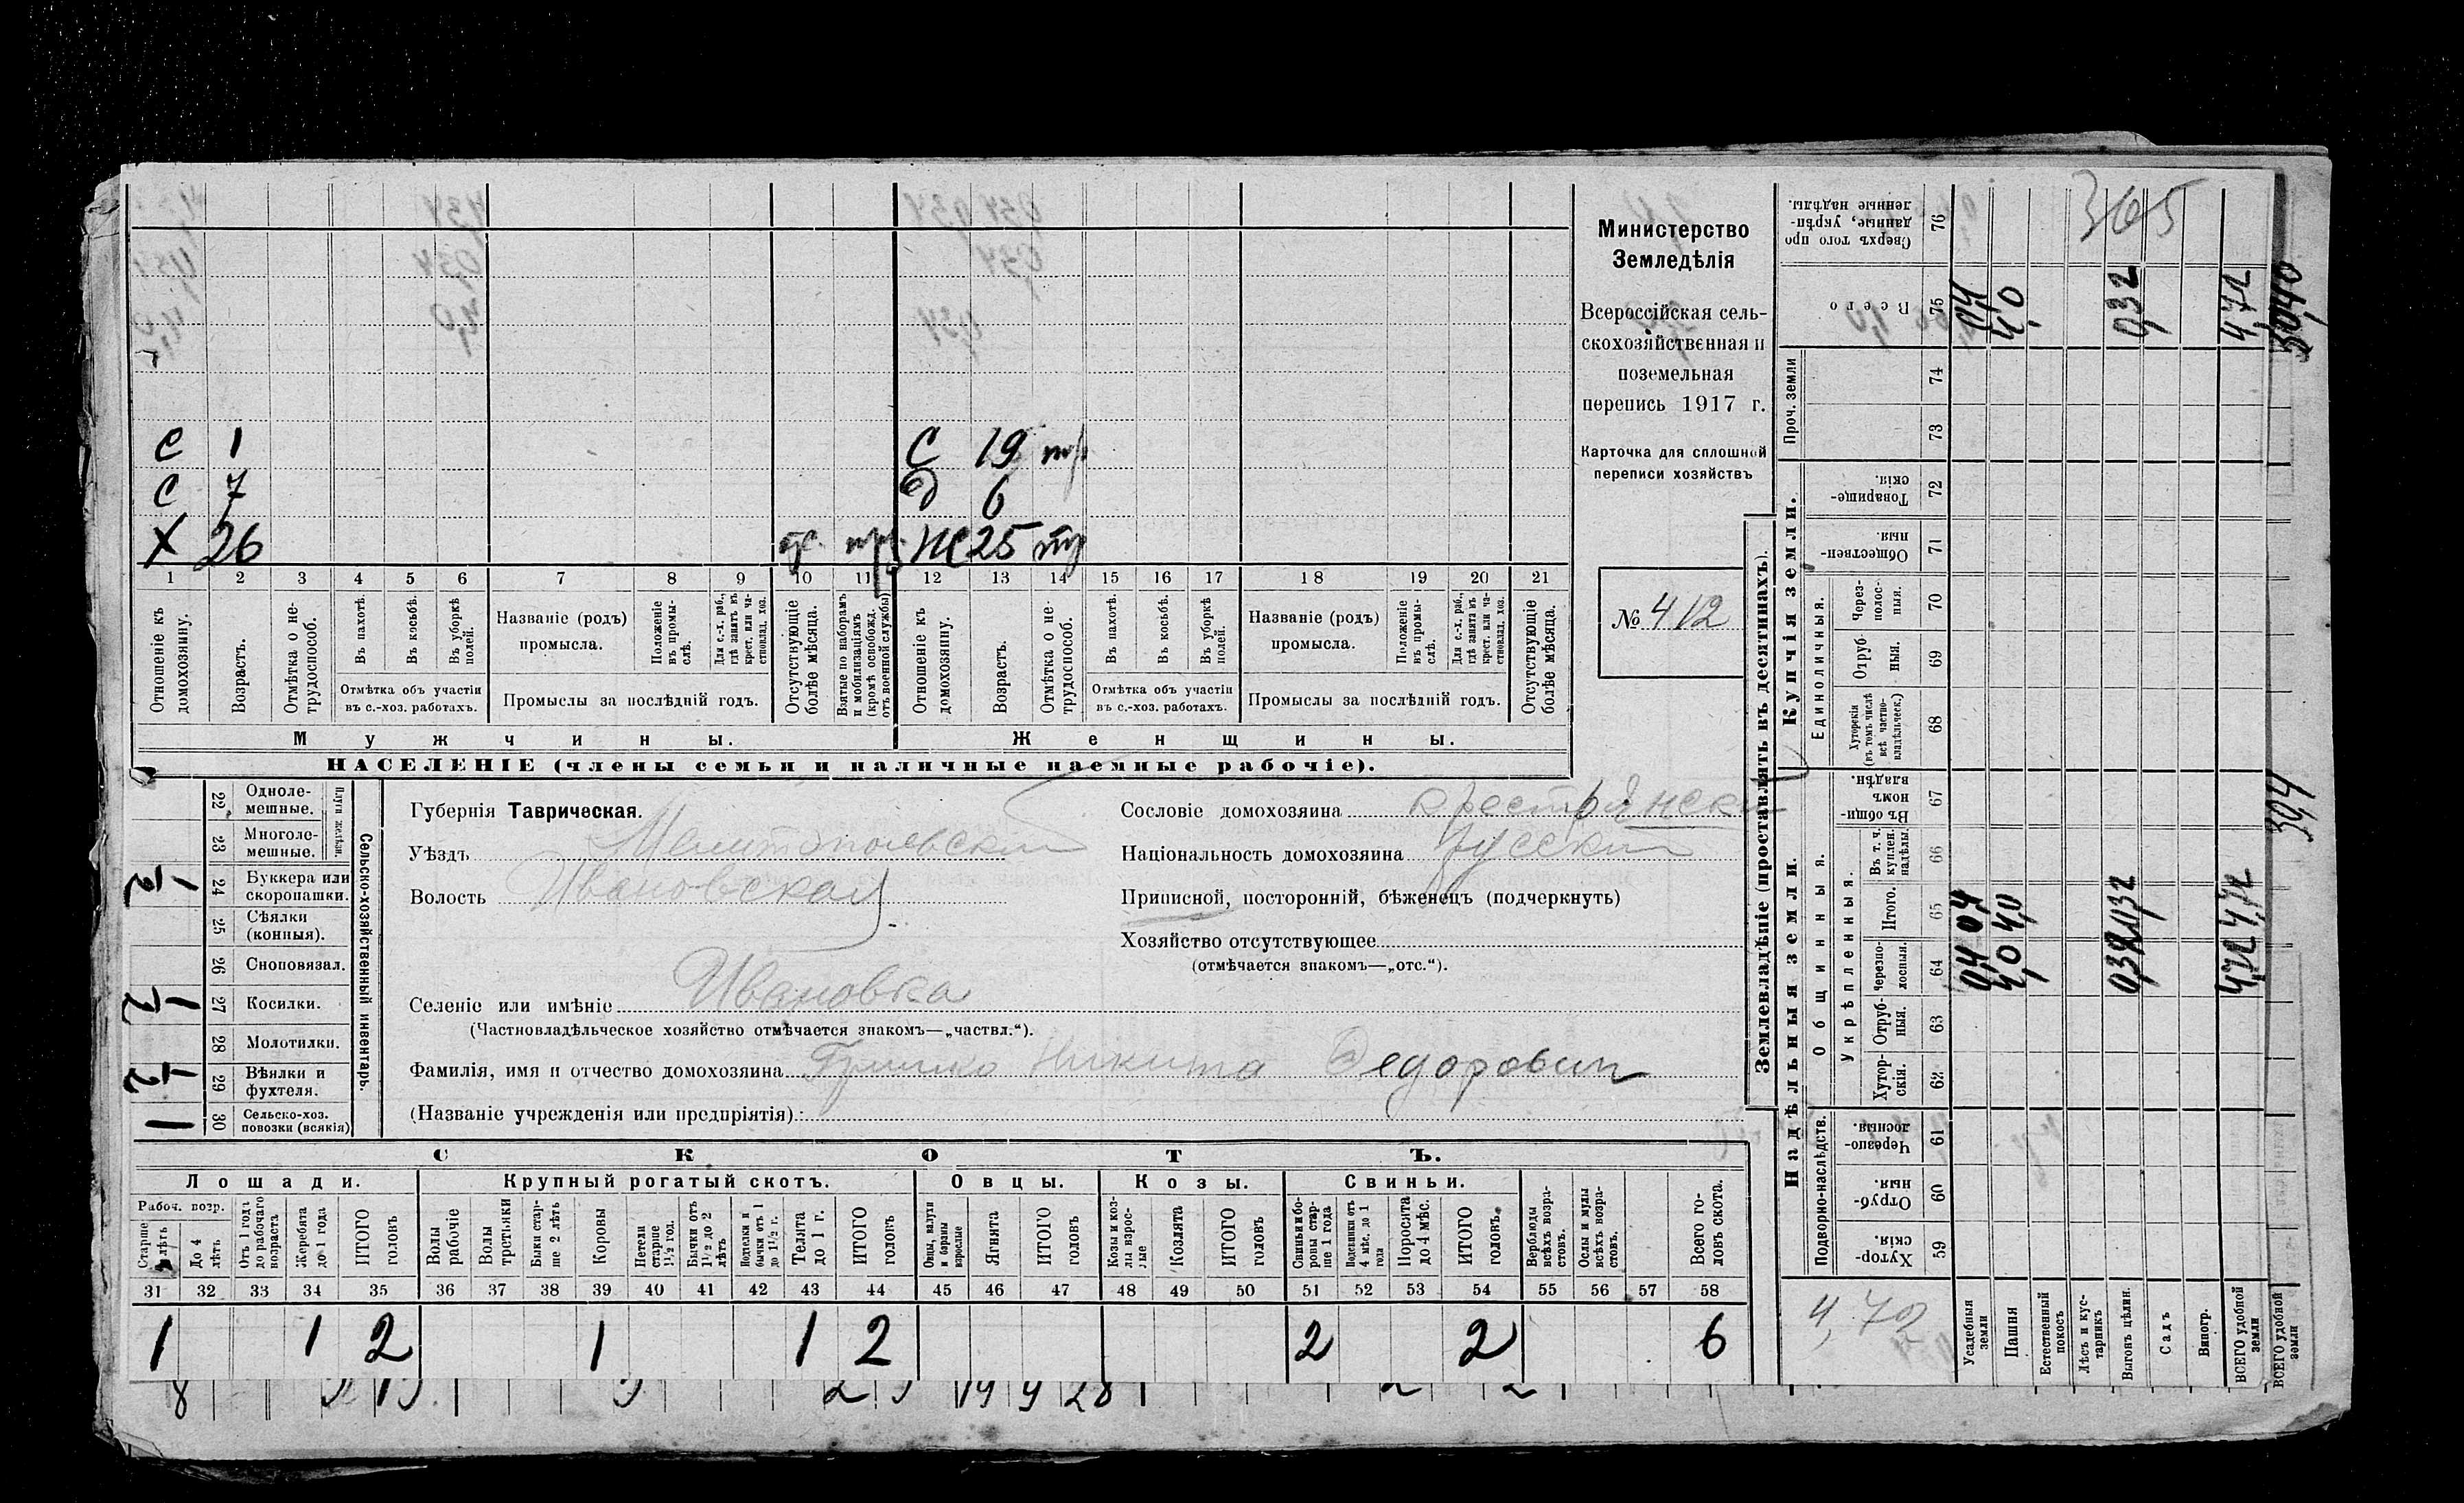 С 1 С 19 тр
С 7 Д 6
Х 26 Ж 25 тр
1 2 3 4 5 6 7 8 9 10 11 12 13 14 15 16 17 18 19 20 21
Отношеніе къ домохозяину.
Возрастъ.
Отмѣтка о не-трудоспособ.
Въ пахотѣ.
Въ косьбѣ.
Въ уборкѣ полей.
Отмѣтка объ участіи
въ с.-хоз. работахъ.
Названіе (родъ)
промысла.
Положеніе въ промы-слѣ.
Для с.-х. раб., гдѣ занятъ въ крест. или ча-стновлад. хоз.
Промыслы за послѣдній годъ.
Отсутствующіе болѣе мѣсяца.
Взятые по наборамъ и мобилизаціямъ (кромѣ освобожд. отъ военной службы)
Отношеніе къ домохозяину.
Возрастъ.
Отмѣтка о не-трудоспособ.
Въ пахотѣ.
Въ косьбѣ.
Въ уборкѣ полей.
Отмѣтка объ участіи
въ с.-хоз. работахъ.
Названіе (родъ)
промысла.
Положеніе въ промы-слѣ.
Для с.-х. раб., гдѣ занята въ крест. или ча-стновлад. хоз.
Промыслы за послѣдній годъ.
Отсутствующіе болѣе мѣсяца.
Мужчины. Женщины.
НАСЕЛЕНІЕ (члены семьи и наличные наемные рабочіе).
Министерство
Земледѣлія
Всероссійская сель-
скохозяйственная и
поземельная
перепись 1917 г.
Карточка для сплошной
переписи хозяйствъ
№ 412
22 Одноле-мешные.
23 Многоле-мешные.
Плуги желѣзн.
1/2 24 Буккера или скоропашки.
25 Сѣялки (конныя).
26 Сноповязал.
27 Косилки.
28 Молотилки.
1/2 29 Вѣялки и фухтеля.
1 30 Сельско-хоз. повозки (всякія)
Сельско-хозяйственный инвентарь.
Губернія Таврическая.
Уѣздъ Мелитопольский
Волость Ивановская
Селеніе или имѣніе Ивановка
(Частновладѣльческое хозяйство отмѣчается знакомъ—„частвл.“).
Фамилія, имя и отчество домохозяина Гришко Никита Федорович
(Названіе учрежденія или предпріятія).
Сословіе домохозяина
Національность домохозяина русский
Приписной, посторонній, бѣженецъ (подчеркнуть)
Хозяйство отсутствующее
(отмѣчается знакомъ—„отс.“).
СКОТЪ.
Лошади. Крупный рогатый скотъ. Овцы. Козы. Свиньи.
Рабоч. возр.
Старше 4 лѣтъ
До 4 лѣтъ
Отъ 1 года до рабочаго возраста
Жеребята до 1 года
ИТОГО головъ
Волы рабочіе
Волы третьяки
Быки стар-ше 2 лѣтъ
Коровы
Нетели старше 1½ год.
Бычки отъ 1½ до 2 лѣтъ
Телята до 1 г.
ИТОГО головъ
Овцы, валухи и бараны взрослые
Ягнята
ИТОГО головъ
Козы и коз-лы взрос-лые
Козлята
ИТОГО головъ
Свиньи и бо-ровы стар-ше 1 года
Подсвинки отъ 4 мѣс. до 1 года
Поросята до 4 мѣс.
ИТОГО головъ.
Верблюды всѣхъ возра-стовъ.
Ослы и мулы всѣхъ возра-стовъ.
Всего го-ловъ скота.
31 32 33 34 35 36 37 38 39 40 41 42 43 44 45 46 47 48 49 50 51 52 53 54 55 56 57 58
1 1 2 1 1 2 2 2 6
Землевладѣніе (проставлять въ десятинахъ).
Надѣльныя земли. Купчія земли. Проч. земли
Подворно-наслѣдств. Общинныя. Единоличныя.
Укрѣпленныя.
Хутор-скія. 59
Отруб-ныя. 60
Черезпо-лосныя. 61
Хутор-скія. 62
Отруб-ныя. 63
Черезпо-лосныя. 64
Итого. 65
Въ т. ч. куплен. надѣлы 66
Въ общи-номъ владѣн. 67
Хуторскія (въ томъ числѣ всѣ частно-владѣльческ.) 68
Отруб-ныя. 69
Через-полос-ныя. 70
Обществен-ныя. 71
Товарище-скія. 72
73 74
Всего 75
Сверхъ того про-данные, укрѣп-ленные надѣлы. 76
365
Усадебныя земли 0,4 0,4 0,4
Пашня 4,0 4,0 4,0
Естественный покосъ
Лѣсъ и кус-тарникъ
Выгонъ цѣлин. 0,32 0,32 0,32
Садъ
Виногр.
ВСЕГО удобной земли 4,72 4,72 4,72
ВСЕГО удобной земли
4,72